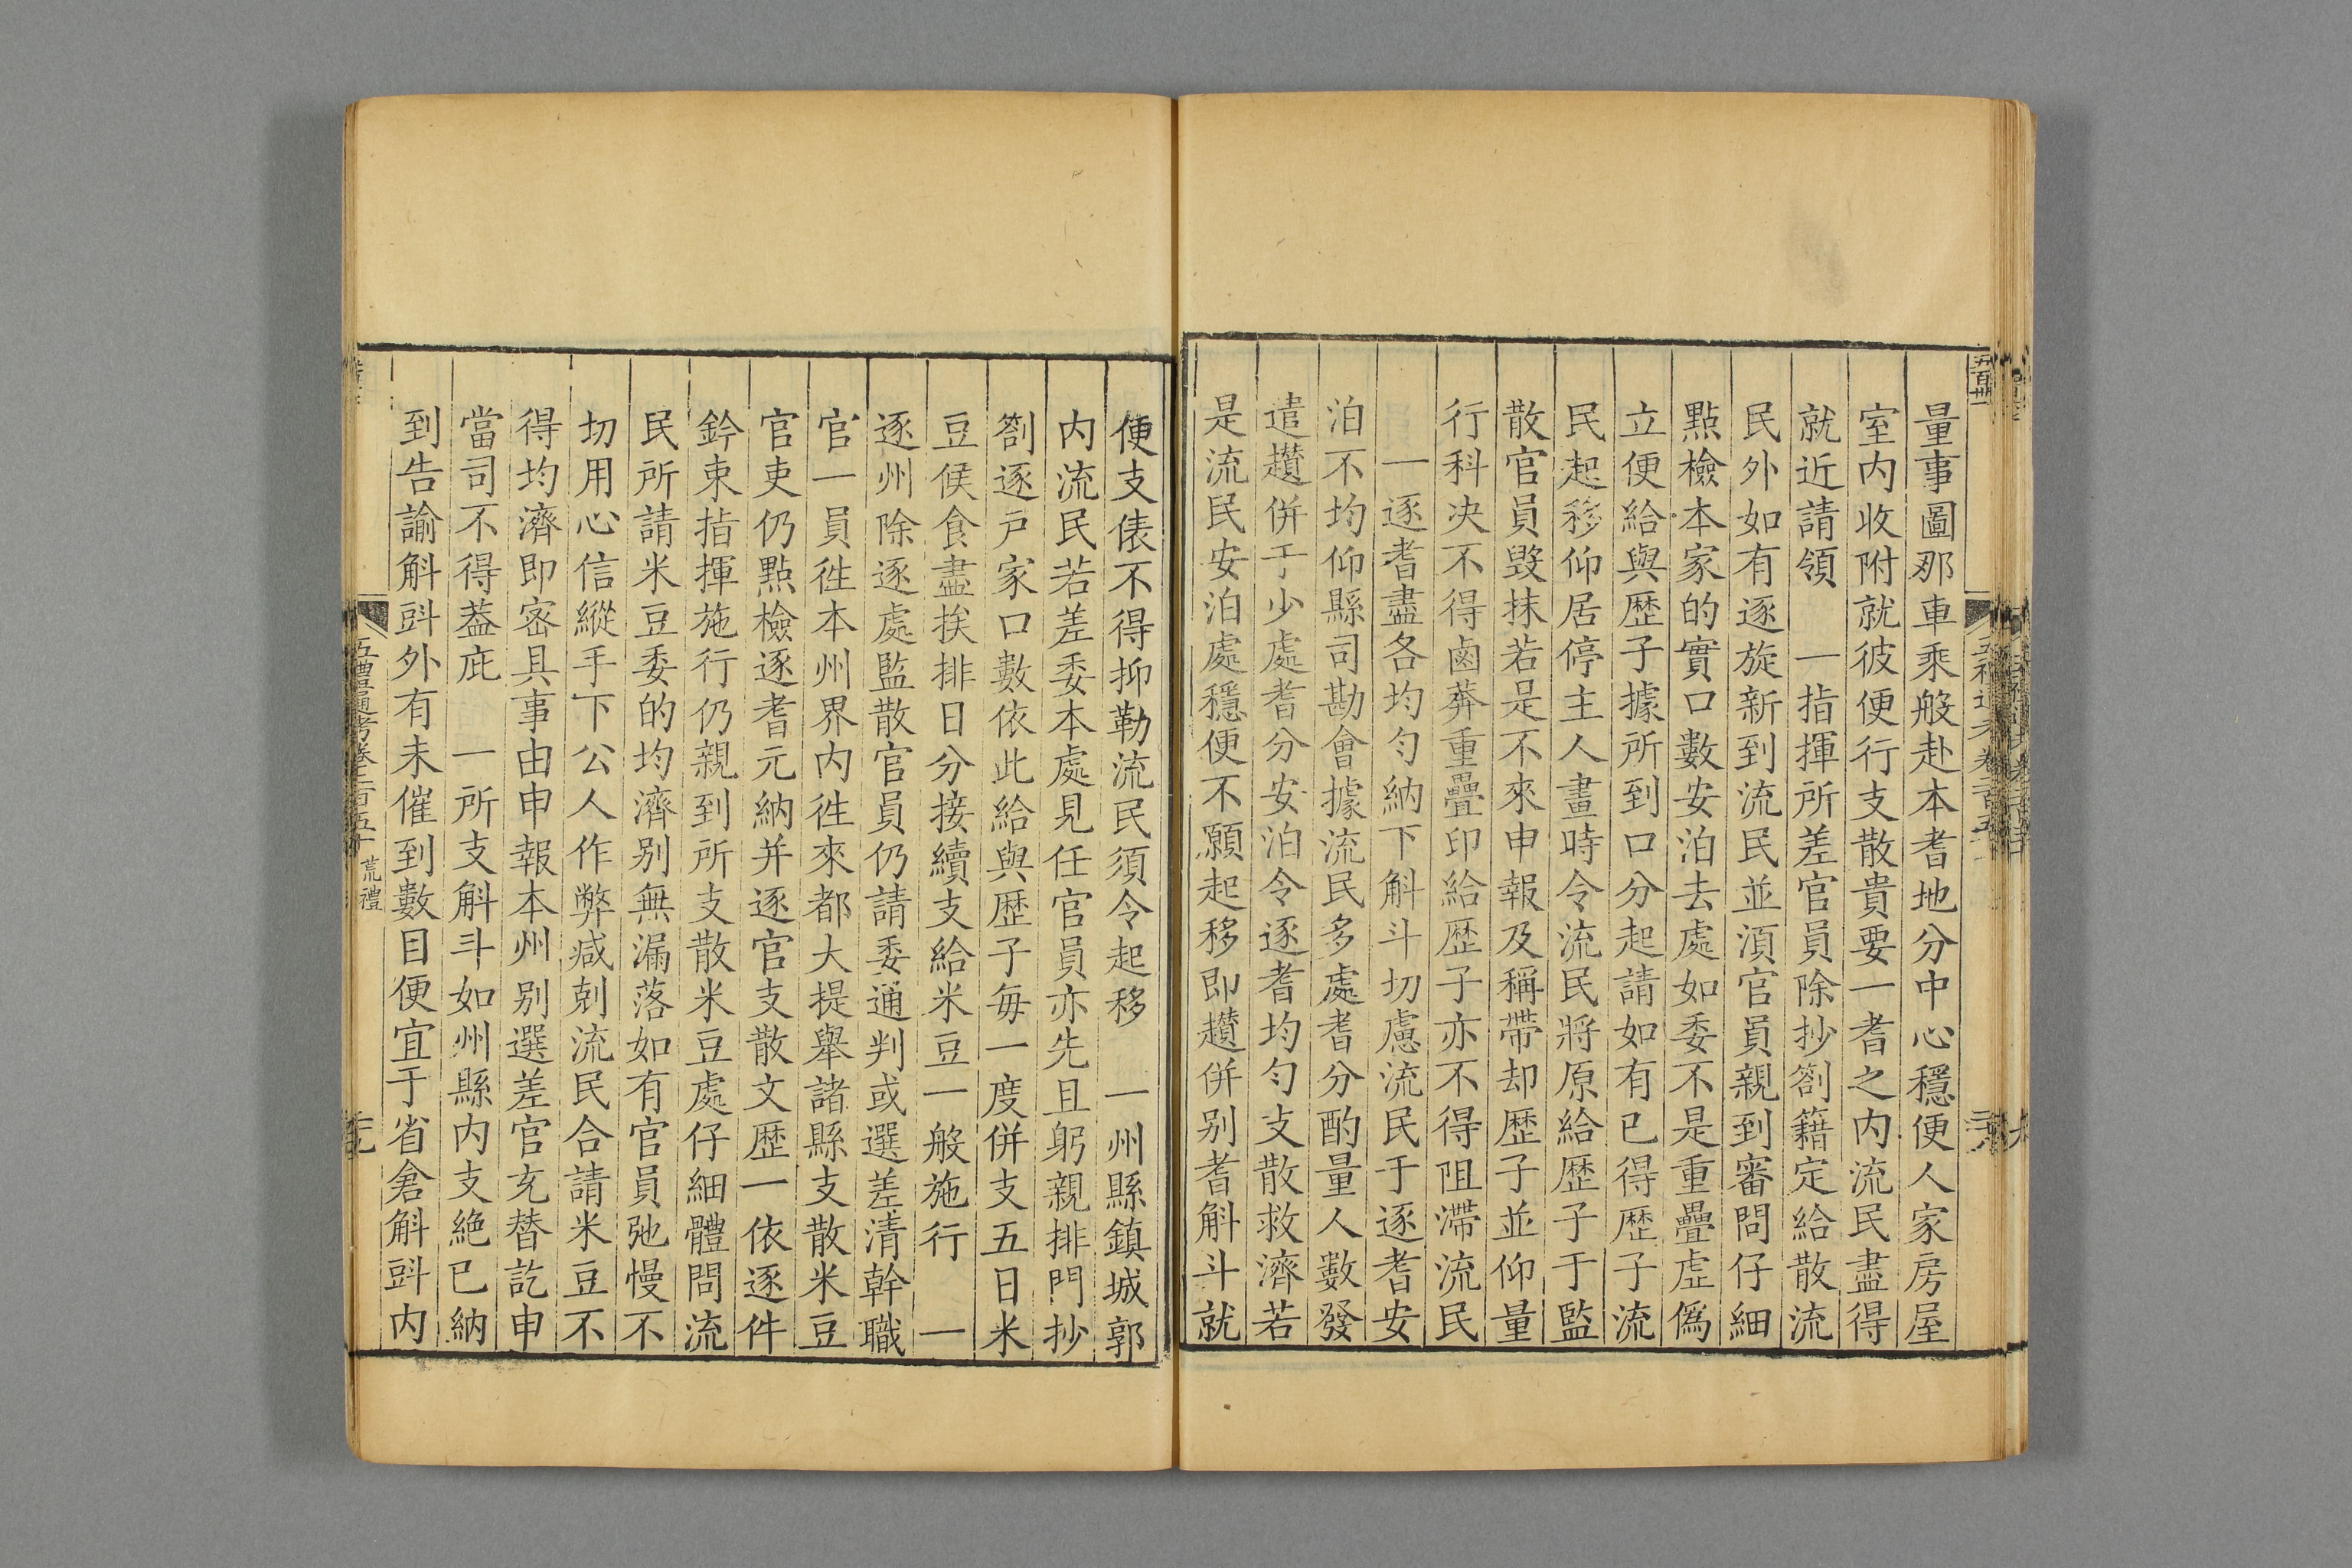 量事圖那車乘般赴本耆地分中心穩便人家房屋
室内收附就彼便行支散貴要一耆之内流民盡得
就近請領　一指揮所差官員除抄劄籍定給散流
民外如有逐旋新到流民並湏官員親到審問仔細
點檢本家的實口數安泊去處如委不是重疊虛僞
立便給與歷子據所到口分起請如有已得歷子流
民起移仰居停主人畫時令流民將原給歷子于監
散官員毀抹若是不來申報及稱帶却歷子並仰量
行科决不得鹵莽重疊印給歷子亦不得阻滯流民
一逐耆盡各均匀納下斛斗切慮流民于逐耆安
泊不均仰縣司勘會據流民多處耆分酌量人數發
遣趲併于少處耆分安泊令逐耆均匀支散救濟若
是流民安泊處穩便不願起移即趲併别耆斛斗就
便支俵不得抑勒流民須令起移　一州縣鎮城郭
内流民若差委本處見任官員亦先且躬親排門抄
劄逐戸家口數依此給與歷子每一度併支五日米
豆候食盡挨排日分接續支給米豆一般施行　一
逐州除逐處監散官員仍請委通判或選差清幹職
官一員徃本州界内徃來都大提舉諸縣支散米豆
官吏仍點檢逐耆元納并逐官支散文歷一依逐件
鈐束指揮施行仍親到所支散米豆處仔細體問流
民所請米豆委的均濟别無漏落如有官員弛慢不
切用心信縱手下公人作弊减剋流民合請米豆不
得均濟即宻具事由申報本州别選差官充替訖申
當司不得葢庇　一所支斛斗如州縣内支絶已納
到告諭斛㪷外有未催到數目便宜于省倉斛㪷内
荒禮